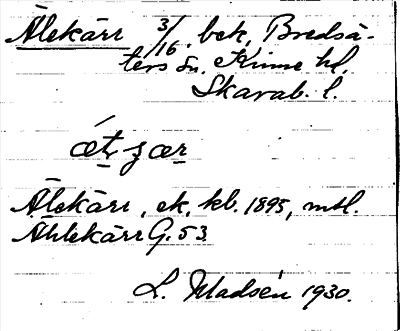 Älekärr 3/16. bek. Bredsä-
ters sn. Kinne hd.
Skarab. l.
Älekärr, ek. kb. 1895, mtl.
Ahlekärr G. 53.
L. Madsén 1930.